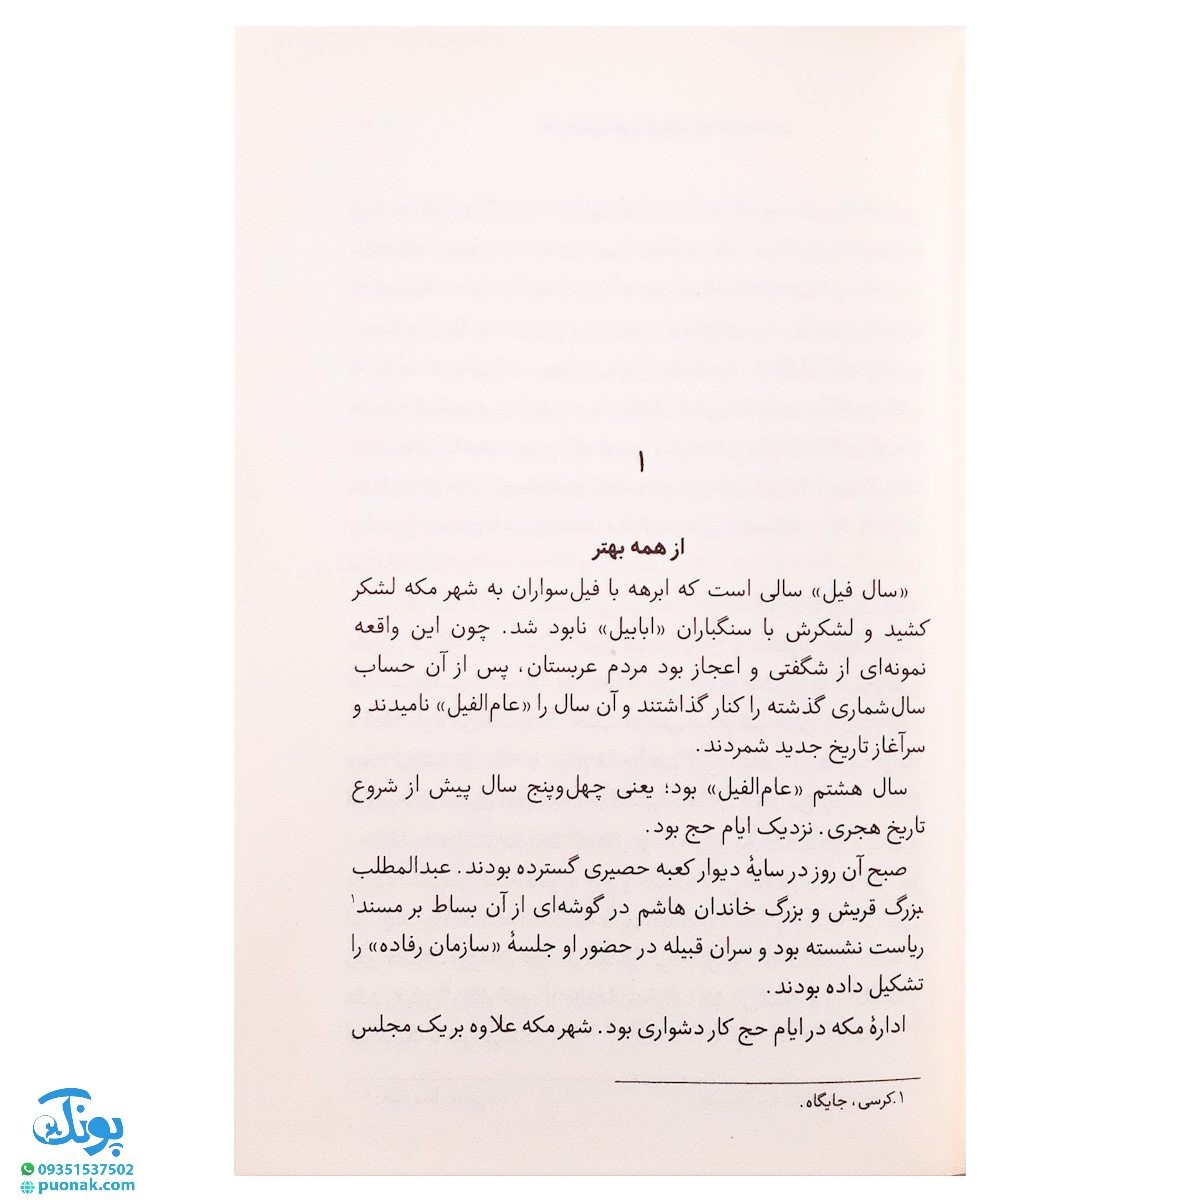 ۱
از همه بهتر
«سال فیل» سالی است که ابرهه با فیل‌سواران به شهر مکه لشکر
کشید و لشکرش با سنگباران «ابابیل» نابود شد. چون این واقعه
نمونه‌ای از شگفتی و اعجاز بود مردم عربستان، پس از آن حساب
سال‌شماری گذشته را کنار گذاشتند و آن سال را «عام‌الفیل» نامیدند و
سرآغاز تاریخ جدید شمردند.
سال هشتم «عام‌الفیل» بود؛ یعنی چهل‌وپنج سال پیش از شروع
تاریخ هجری. نزدیک ایام حج بود.
صبح آن روز در سایهٔ دیوار کعبه حصیری گسترده بودند. عبدالمطلب
بزرگ قریش و بزرگ خاندان هاشم در گوشه‌ای از آن بساط بر مسند۱
ریاست نشسته بود و سران قبیله در حضور او جلسهٔ «سازمان رفاده» را
تشکیل داده بودند.
ادارهٔ مکه در ایام حج کار دشواری بود. شهر مکه علاوه بر یک مجلس
۱.کرسی، جایگاه.
پونک
09351537502
puonak.com